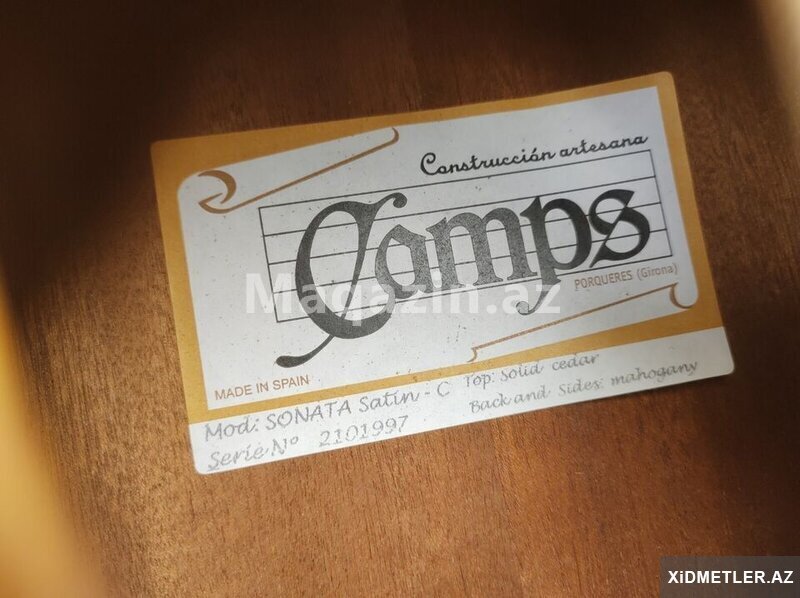 Construcción artesana
Camps
PORQUERES (Girona)
Maqazin.az
MADE IN SPAIN
Mod: SONATA Satin - C Top: solid cedar
Serie Nº 2101997 Back and Sides: mahogany
XiDMETLER.AZ